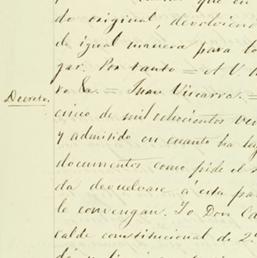 do original, devolviend
de igual manera para lo
gar. Por tanto = A V.
Juan Vizcarra. =
Decreto.
cinco de mil ochocientos
y admitido en cuanto ha lug
documentos como pide el
da devuelvase a esta pa
le convengan. Yo Don
calde constitucional de 2º